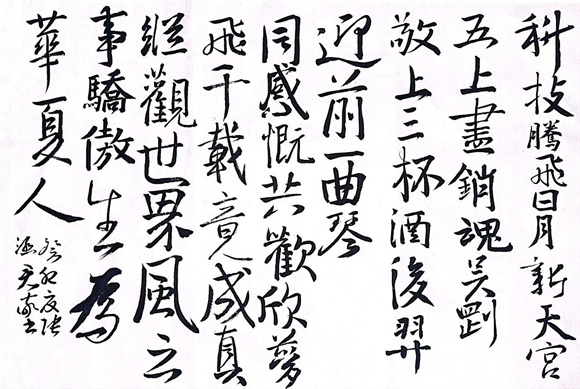 科技騰飛日月新天宮
五上盡銷魂吳剛
敬上三杯酒後羿
迎前一曲琴
同感慨共歡欣夢
飛千載竟成真
縱觀世界風云
事驕傲生為
華夏人